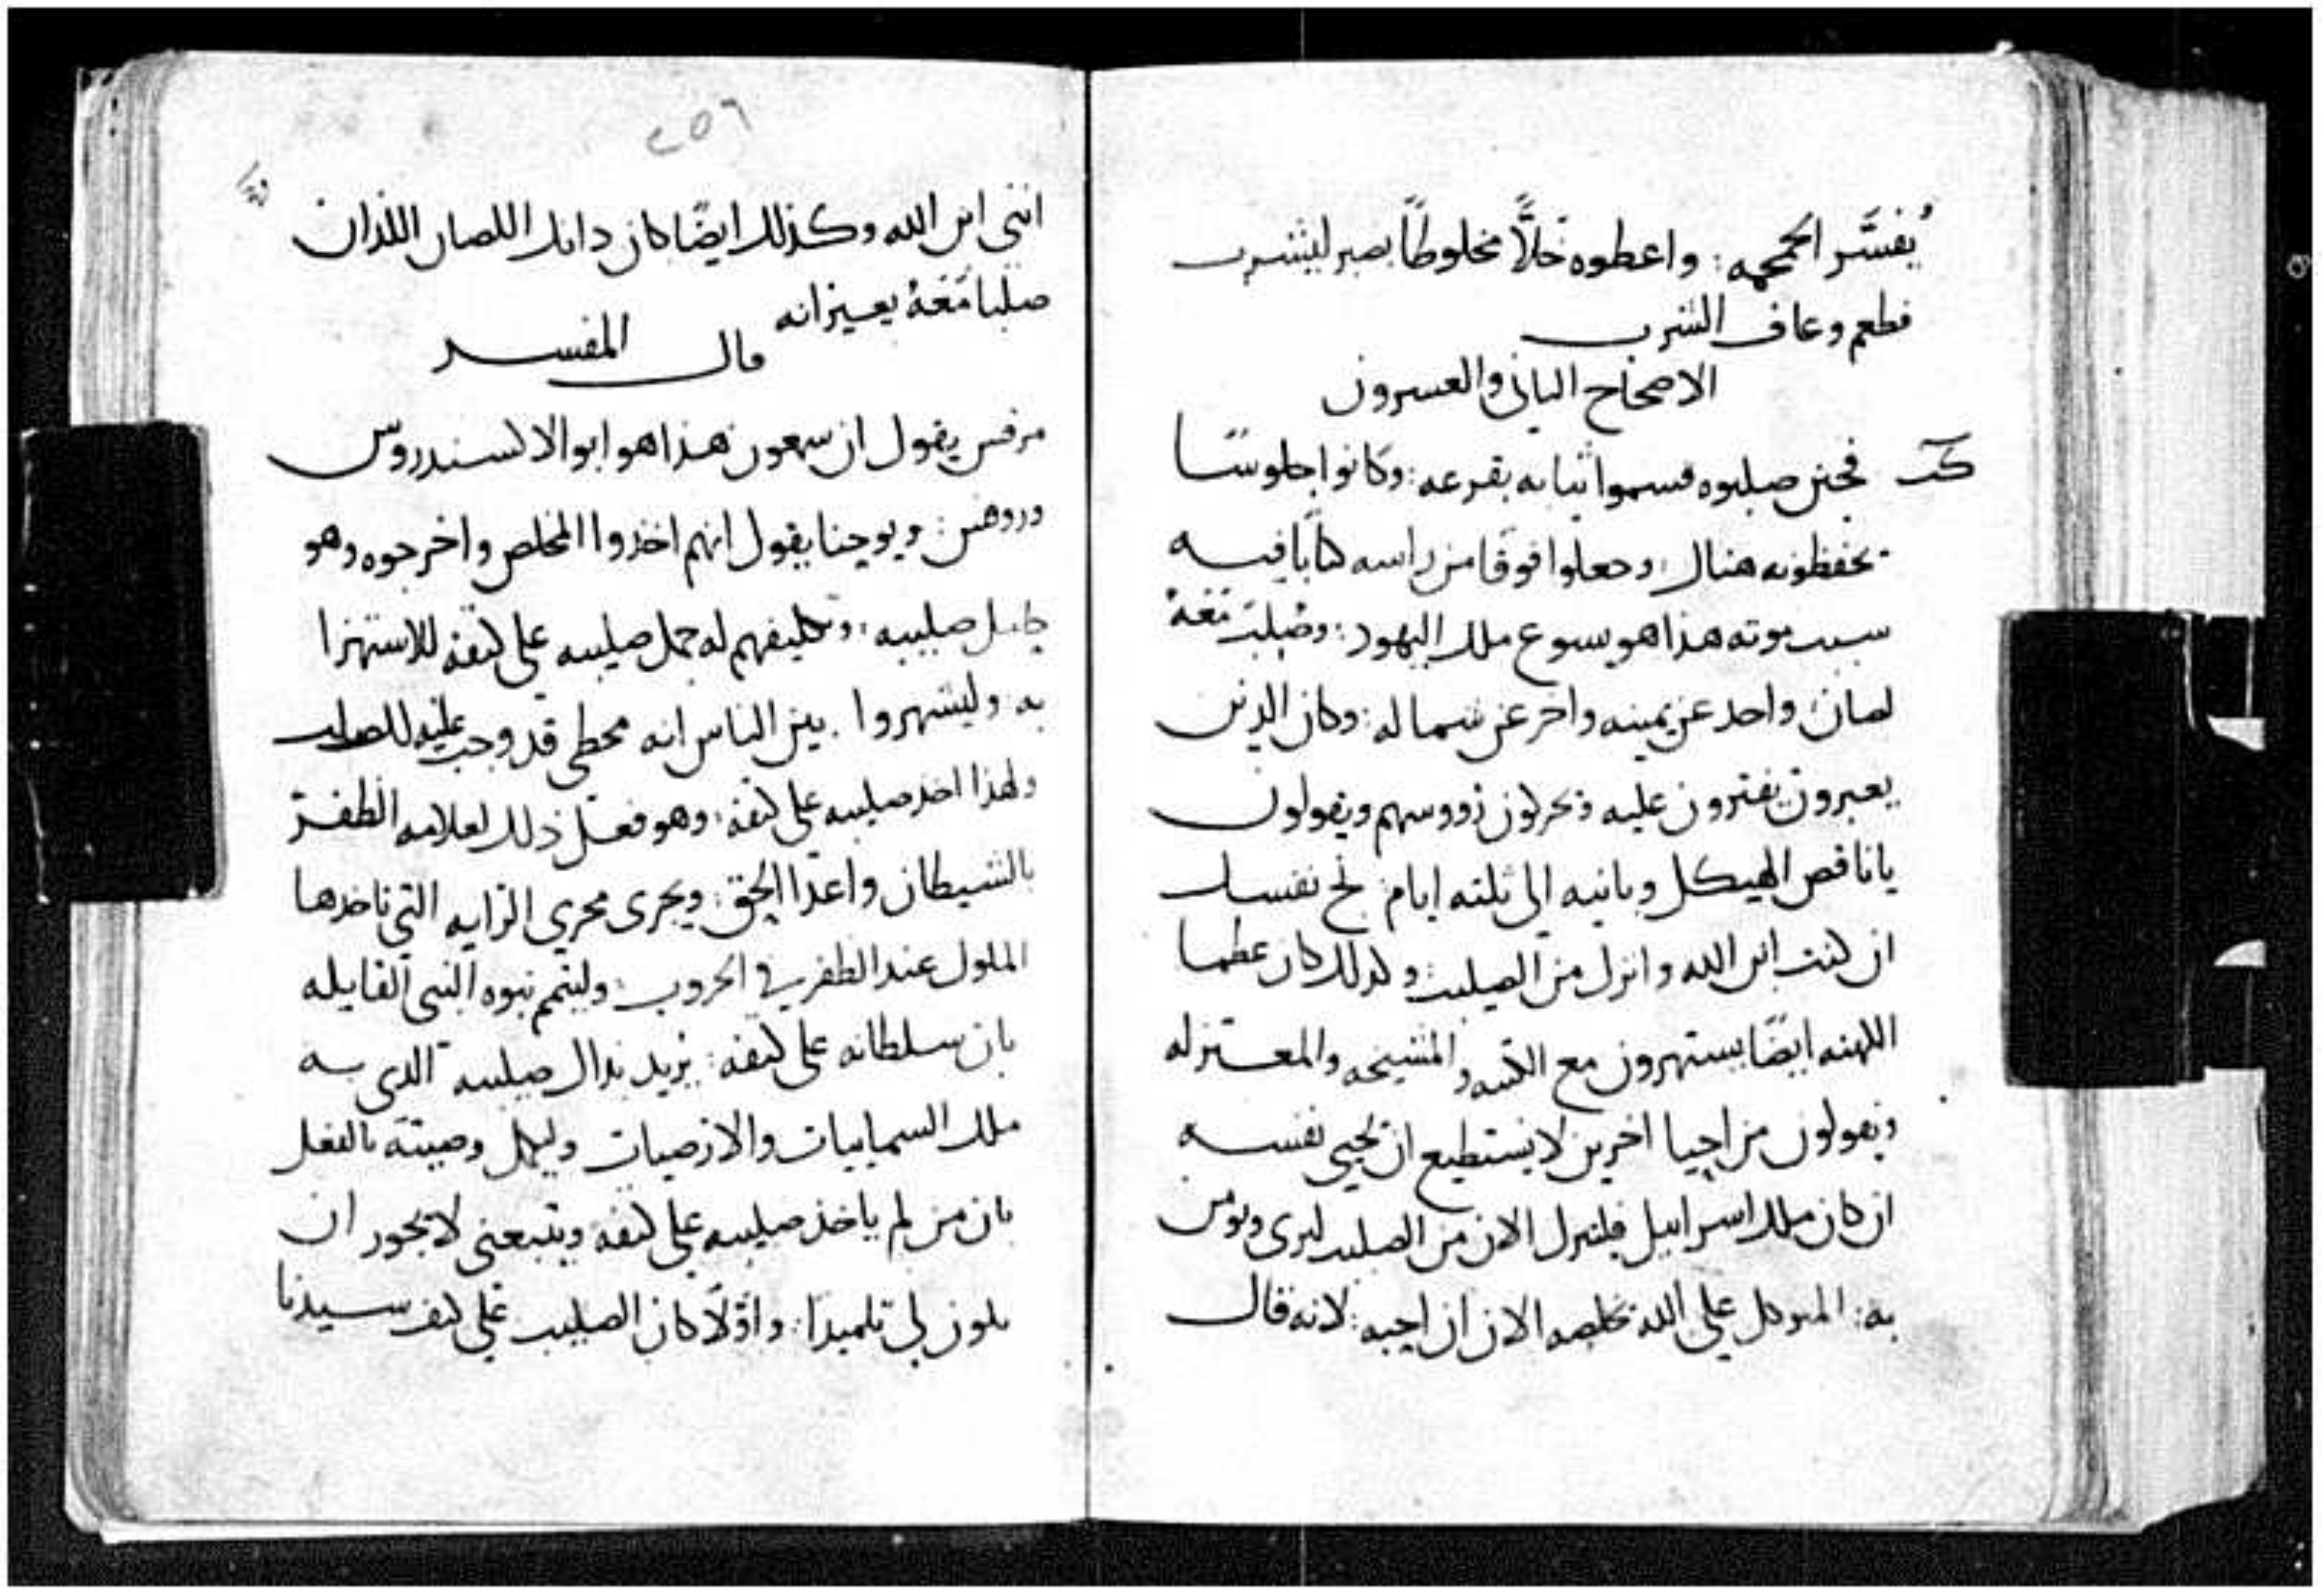 يُفسَّر الجمجمه: واعطوه خلًّا مخلوطاً بصبر ليشرب
فطعم وعاف الشرب
الاصحاح الثانى والعسرون
فحين صلبوه قسموا ثيابه بقرعه: وكانوا جلوسًا
يحفظونه هناك: وجعلوا فوقا من راسه كتابًا فيه
سبب موته هذا هو يسوع ملك اليهود: وصُلب مَعَهُ
لصان واحد عن يمينه واخر عن شماله: وكان الذين
يعبرون يفترون عليه ويحركون رووسهم ويقولون
يا ناقص الهيكل وبانيه الى ثلثه ايام نج نفسك
ان كنت ابن الله وانزل من الصليب: وكذلك كان عظما
الكهنه ايضًا يستهزون مع الكتبه والمشيخه والمعتزله
ويقولون من احيا اخرين لا يستطيع ان يحيى نفسه
ان كان ملك اسراييل فلينزل الان من الصليب لنرى ونومن
به: المتوكل على الله يخلصه الان ان احبه: لانه قال
٢٥٦
اننى ابن الله وكذلك ايضًا كان ذانك اللصان اللذان
صلبا مَعَهُ يعيرانه
قال المفسر
مرقس يقول ان سمعون هذا هو ابو الالكسندروس
وروفس: ويوحنا يقول انهم اخذوا المخلص واخرجوه وهو
حامل صليبه: وتكليفهم له حمل صليبه على كتفه للاستهزا
به: وليشهروا بين الناس انه مخطى قد وجب عليه الصلب
ولهذا اخذ صليبه على كتفه: وهو فعل ذلك لعلامه الظفر
بالشيطان واعدا الحق: ويجرى مجرى الرايه التى تاخذها
الملوك عند الظفر فى الحروب: وليتم نبوه النبى القايله
بان سلطانه على كتفه: يريد بذاك صليبه الذى به
ملك السماييات والارضيات وليكمل وصيته بالفعل
بان من لم ياخذ صليبه على كتفه ويتبعنى لا يجوز ان
يكون لى تلميذًا: واوّلًا كان الصليب على كتف سيدنا